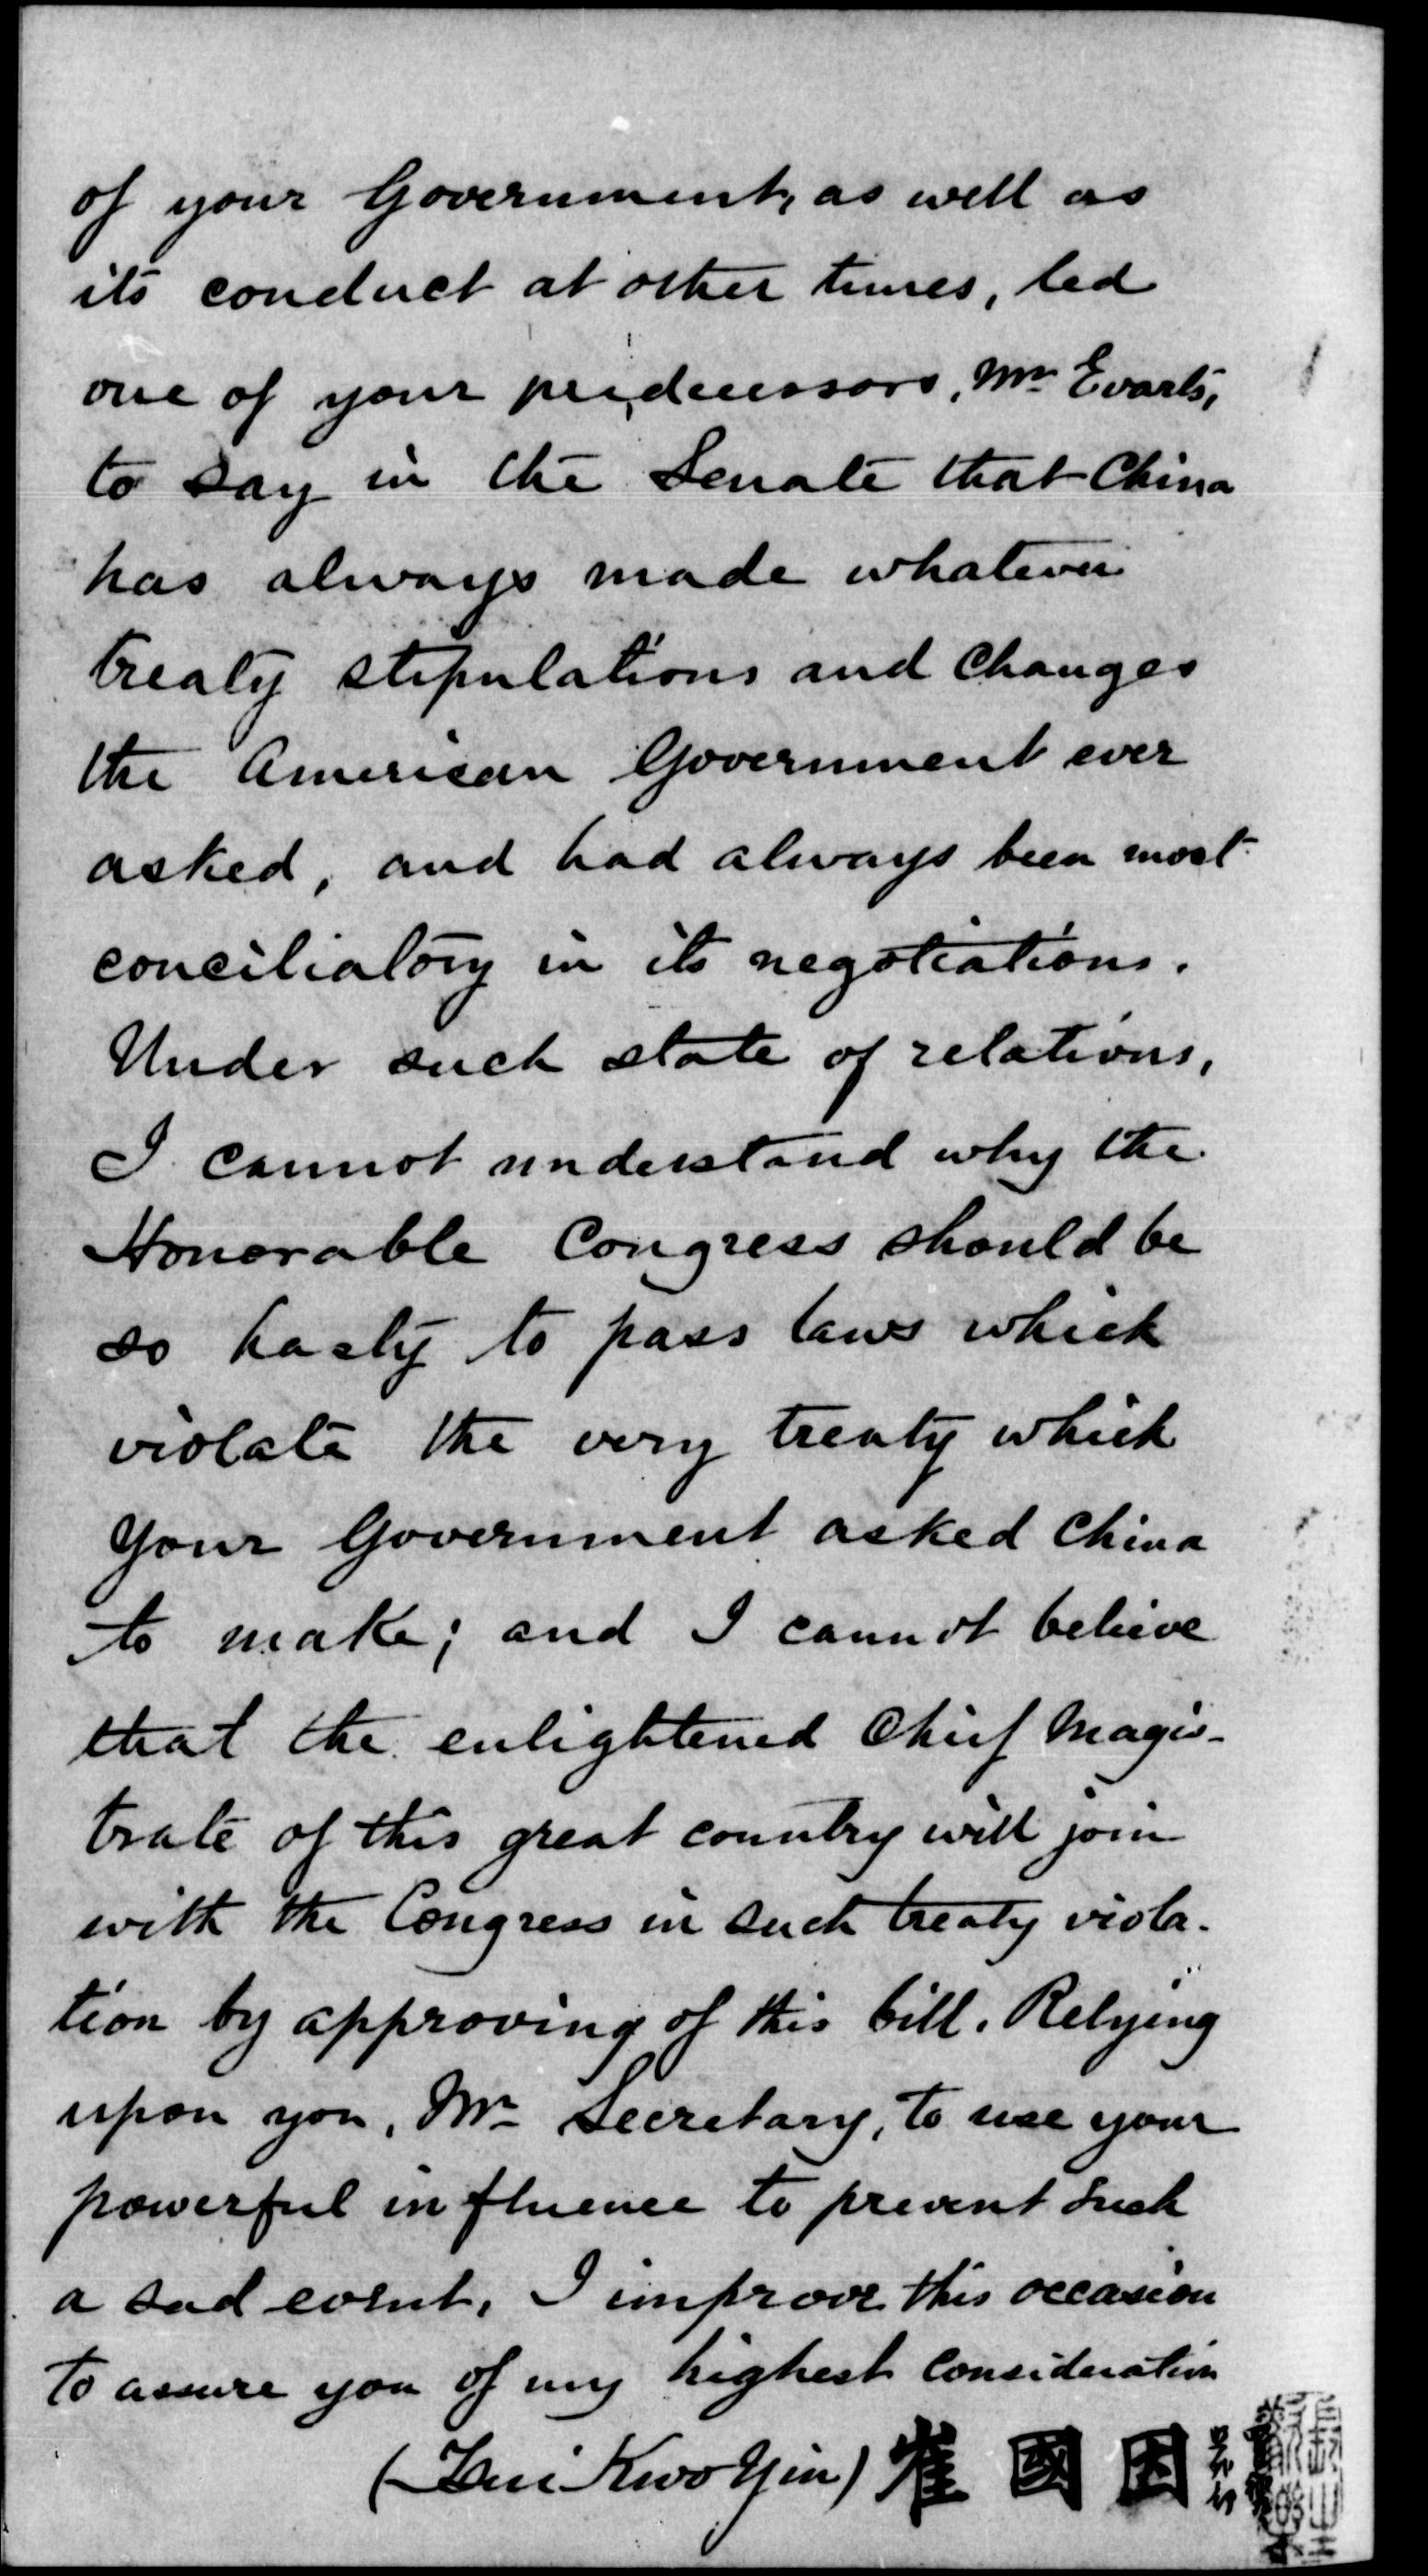 of your Government, as well as
its conduct at other times, led
one of your predecessors, Mr Evarts,
to say in the Senate that China
has always made whatever
treaty stipulations and changes
the American Government ever
asked, and had always been most
conciliatory in its negotiations.
Under such state of relations,
I cannot understand why the
Honorable Congress should be
so hasty to pass laws which
violate the very treaty which
your Government asked China
to make; and I cannot believe
that the enlightened Chief Magis-
trate of this great country will join
with the Congress in such treaty viola-
tion by approving of this bill. Relying
upon you, Mr Secretary, to use your
powerful influence to prevent such
a sad event, I improve this occasion
to assure you of my highest consideration
(Tsui Kwo Yin) 崔國因